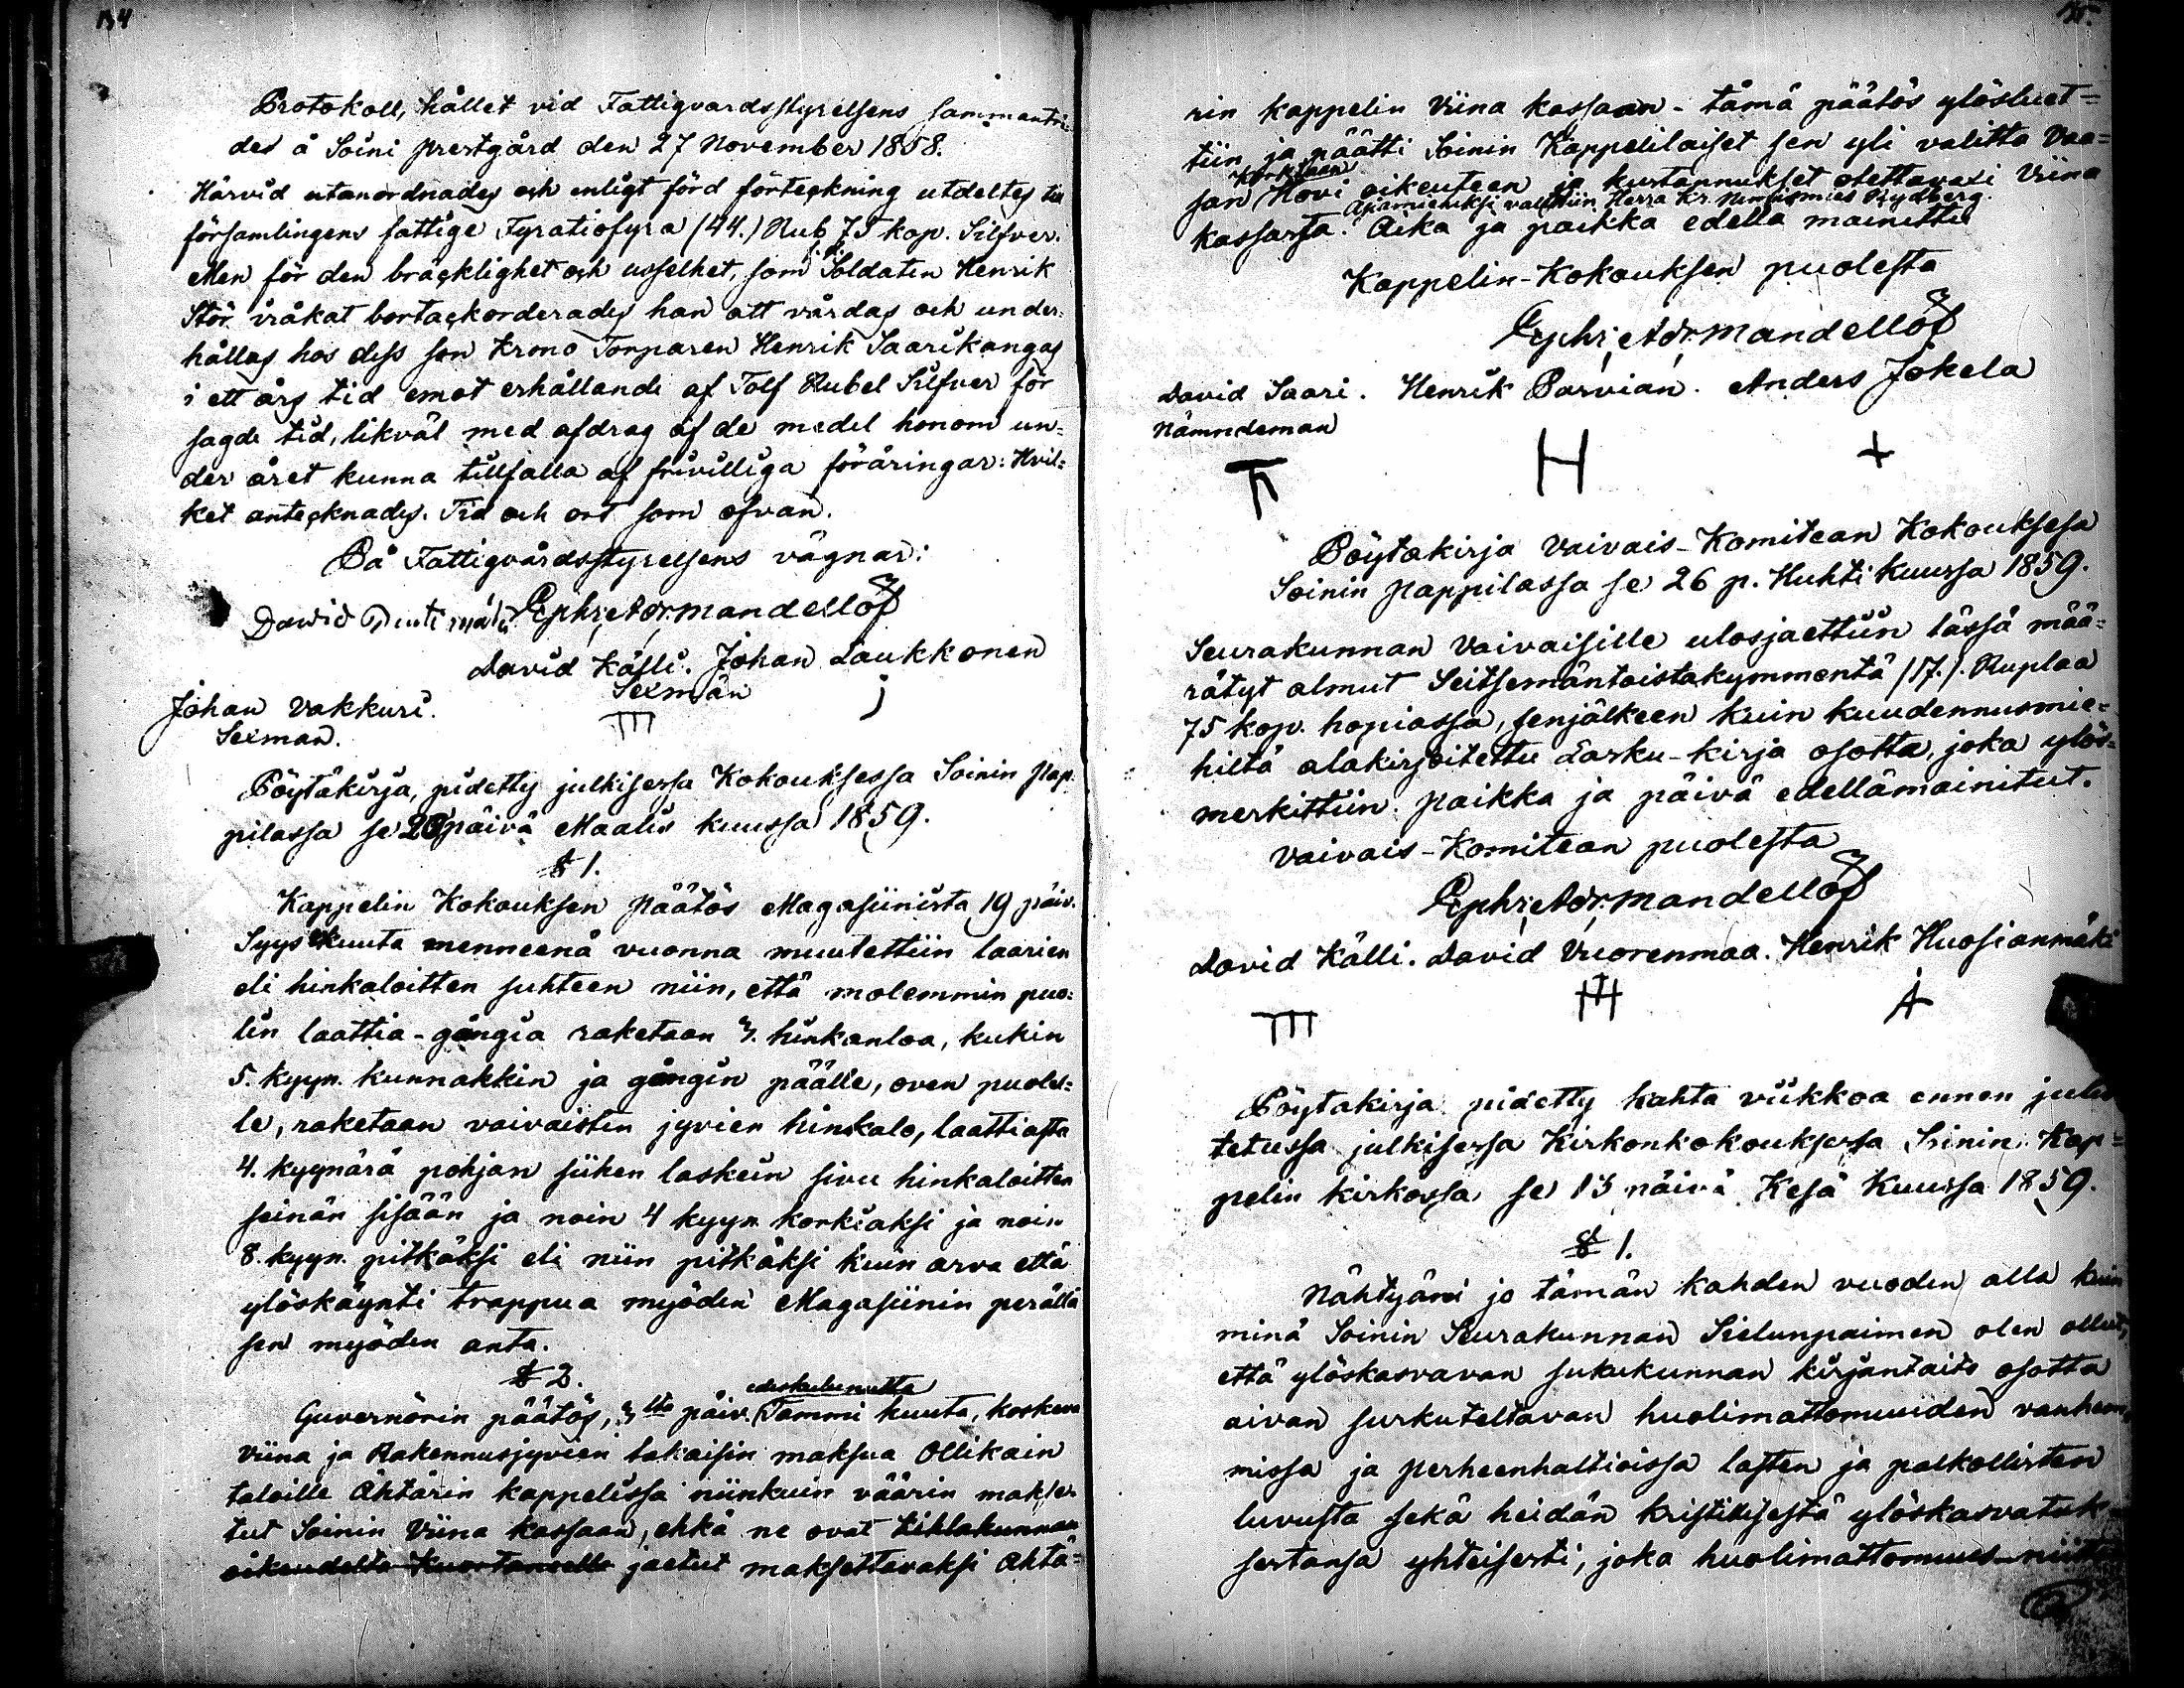 134
Protokoll, hållet vid Fattigvardsstyrelsens sammanträ=
des å Soini Prestgård den 27 November 1858.
Härvid utanordnades och enligt förd förteckning utdeltes till
församlingens fattige Fyratiofyra (44.) Rub 75 kop. Silfver.
Men för den bräcklighet och usselhet, som f.d. Soldaten Henrik
Stör råkat bortackorderades han att vårdas och under=
hållas hos dess son Krono Torparen Henrik Saarikangas
i ett års tid emot erhållande af Tolf Rubel Silfver för
sagde tid, likväl med afdrag af de medel honom un=
der året kunna tillfalla af frivilliga föräringar: Hvil=
ket antecknades. Tid och ort som ofvan.
På Fattigvårdsstyrelsens vägnar:
Dawid Pentimäki. Ephr. Adr. Mandellöf
David Källi. Johan Laukkonen
Sexmän
Johan Vakkuri.
Sexman.
Pöytäkirja, pidetty julkisessa Kokouksessa Soinin Pap=
pilassa se 20 päivä Maalis kuussa 1859.
§ 1.
Kappelin Kokouksen päätös Magasiinista 19 päiv.
Syys kuuta menneenä vuonna muutettiin laarien
eli hinkaloitten suhteen niin, että molemmin puo=
lin laattia-gångia raketaan 3. hinkanloa, kukin
5. kyyn. kunnakkin ja gångin päälle, oven puolel=
le, raketaan vaivaisten jyvien hinkalo, laattiasta
4. kyynärä pohjan siihen laskein sivu hinkaloitten
seinän sisään ja noin 4 kyyn korkiaksi ja noin
8. kyyn. pitkäksi eli niin pitkäksi kuin arva että
ylöskäynti trappua myöden Magasiinin perällä
sen myöden anta.
§ 2.
edeskulunutta
Guvernörin päätös, 3 lta päiv. Tammi kuuta, koskeva
Viina ja Rakennusjyvien takaisin maksua Ollikain
taloille Ähtärin kappelissa niinkuin väärin makse=
tut Soinin Viina kassaan, ehkä ne ovat Kihlakunnan
oikeudelta Kuortaneella jaetut maksettavaksi Ähtä=
rin kappelin Viina kassaan - tämä päätös ylösluet=
tiin ja päätti Soinin Kappelilaiset sen yli valitta Vaa=
korkiaan
san Hovi oikeuteen ja kustannukset otettavaxi Viina
Asiamieheksi valittiin Herra Kr. Nimismies Rydberg.
kassasta. Aika ja paikka edellä mainittu
Kappelin-Kokouksen puolesta
Ephr. Adr. Mandellöf
David Saari. Henrik Parvian. Anders Jokela
Nämndeman
Pöytakirja Vaivais-Komitean Kokouksesa
Soinin Pappilassa se 26 p. Huhti kuussa 1859.
Seurakunnan Vaivaisille ulosjaettiin tässä mää=
rätyt almut Seitsemäntoistakymmentä (17.). Ruplaa
75 kop. hopiassa, senjälkeen kuin kuudennusmie=
hiltä alakirjoitettu Lasku-kirja osotta, joka ylös=
merkittiin. Paikka ja päivä edellämainitut.
Vaivais-Komitean puolesta
Ephr. Adr. Mandellöf
David Källi. David Vuorenmaa. Henrik Huosianmäki
Pöytakirja pidetty kahta viikkoa ennen julis
tetussa julkisessa Kirkonkokouksessa Soinin Kap=
pelin kirkossa se 13 päivä Kesä Kuussa 1859.
§ 1.
Nähtyäni jo tämän kahden vuoden alla kuin
minä Soinin Seurakunnan Sielunpaimen olen ollut,
että ylöskasvavan sukukunnan kirjantaito osotta
aivan surkuteltavan huolimattomuuden vanhem=
missa ja perheenhaltioissa lasten ja palkollisten
luvusta sekä heidän kristillisestä ylöskasvatuk=
sestansa yhteisesti, joka huolimattomuus